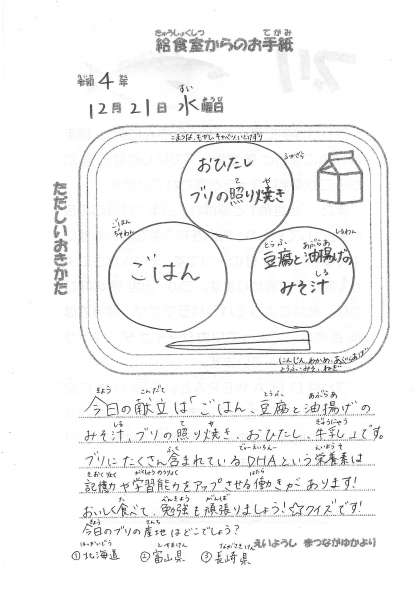 給食室からのお手紙
令和4年
12月21日 水曜日
ただしいおきかた
こまつな、もやし、キャベツ、いとけずり
おひたし
ブリの照り焼き
ごはん
ごはんぢゃわん
豆腐と油揚げの
みそ汁
しるわん
にんじん、わかめ、あぶらあげ
とうふ、みそ、ねぎ
今日の献立は「ごはん、豆腐と油揚げの
みそ汁、ブリの照り焼き、おひたし、牛乳」です。
ブリにたくさん含まれているDHAという栄養素は
記憶力や学習能力をアップさせる働きがあります!
おいしく食べて、勉強も頑張りましょう!☆クイズです!
今日のブリの産地はどこでしょう?
①北海道 ②富山県 ③長崎県
えいようし まつながゆかより